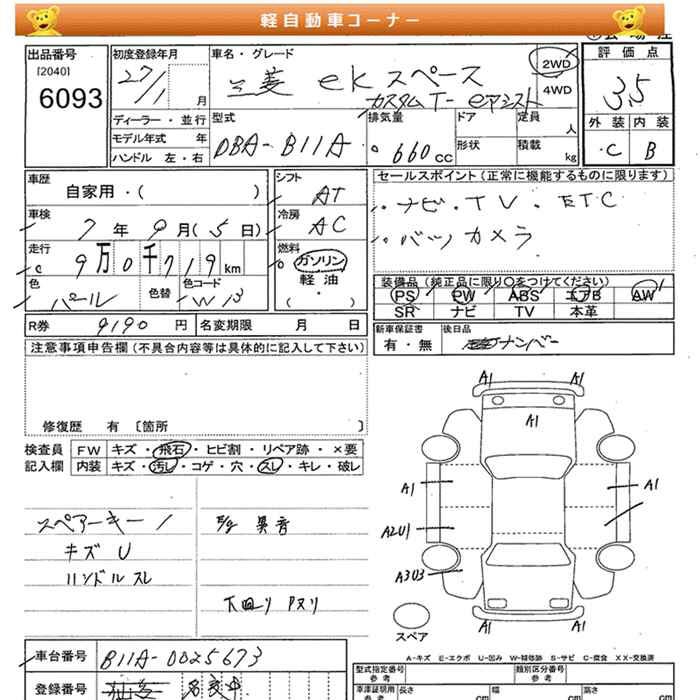 軽自動車コーナー
出品番号
[2040]
6093
初度登録年月
27/1 月
車名・グレード
三菱 ekスペース
カスタムT-eアシスト
2WD
4WD
評価点
3.5
外装 内装
C B
ディーラー・並行
モデル年式 年
ハンドル 左・右
型式
DBA-B11A
排気量
660cc
ドア
形状
定員
人
積載
kg
車歴
自家用・( )
車検
7年9月(5日)
走行
9万0千719km
色
パール
色替
色コード
W13
シフト
AT
冷房
AC
燃料
ガソリン
軽油
( ・ )
セールスポイント(正常に機能するものに限ります)
ナビ・TV・ETC
バックカメラ
装備品(純正品に限り○をつけてください)
PS PW ABS エアB AW
SR ナビ TV 本革
R券 9190円 名変期限 月 日
新車保証書
有・無
後日品
ナンバー
注意事項申告欄(不具合内容等は具体的に記入して下さい)
修復歴 有 〔箇所 〕
検査員
記入欄
FW キズ・飛石・ヒビ割・リペア跡・×要
内装 キズ・汚レ・コゲ・穴・スレ・キレ・破レ
スペアーキー1
キズU
ハンドルスレ
E/g 異音
下回りアヌリ
A1 A1
A1
A1 A1
A2U1
A3U3
A1 A1
スペア
A-キズ E-エクボ U-凹み W-補修跡 S-サビ C-腐食 XX-交換済
車台番号 B11A-0025673
登録番号 名変中
型式指定番号
参考
類別区分番号
参考
車庫証明用
参考
長さ cm 幅 cm 高 cm